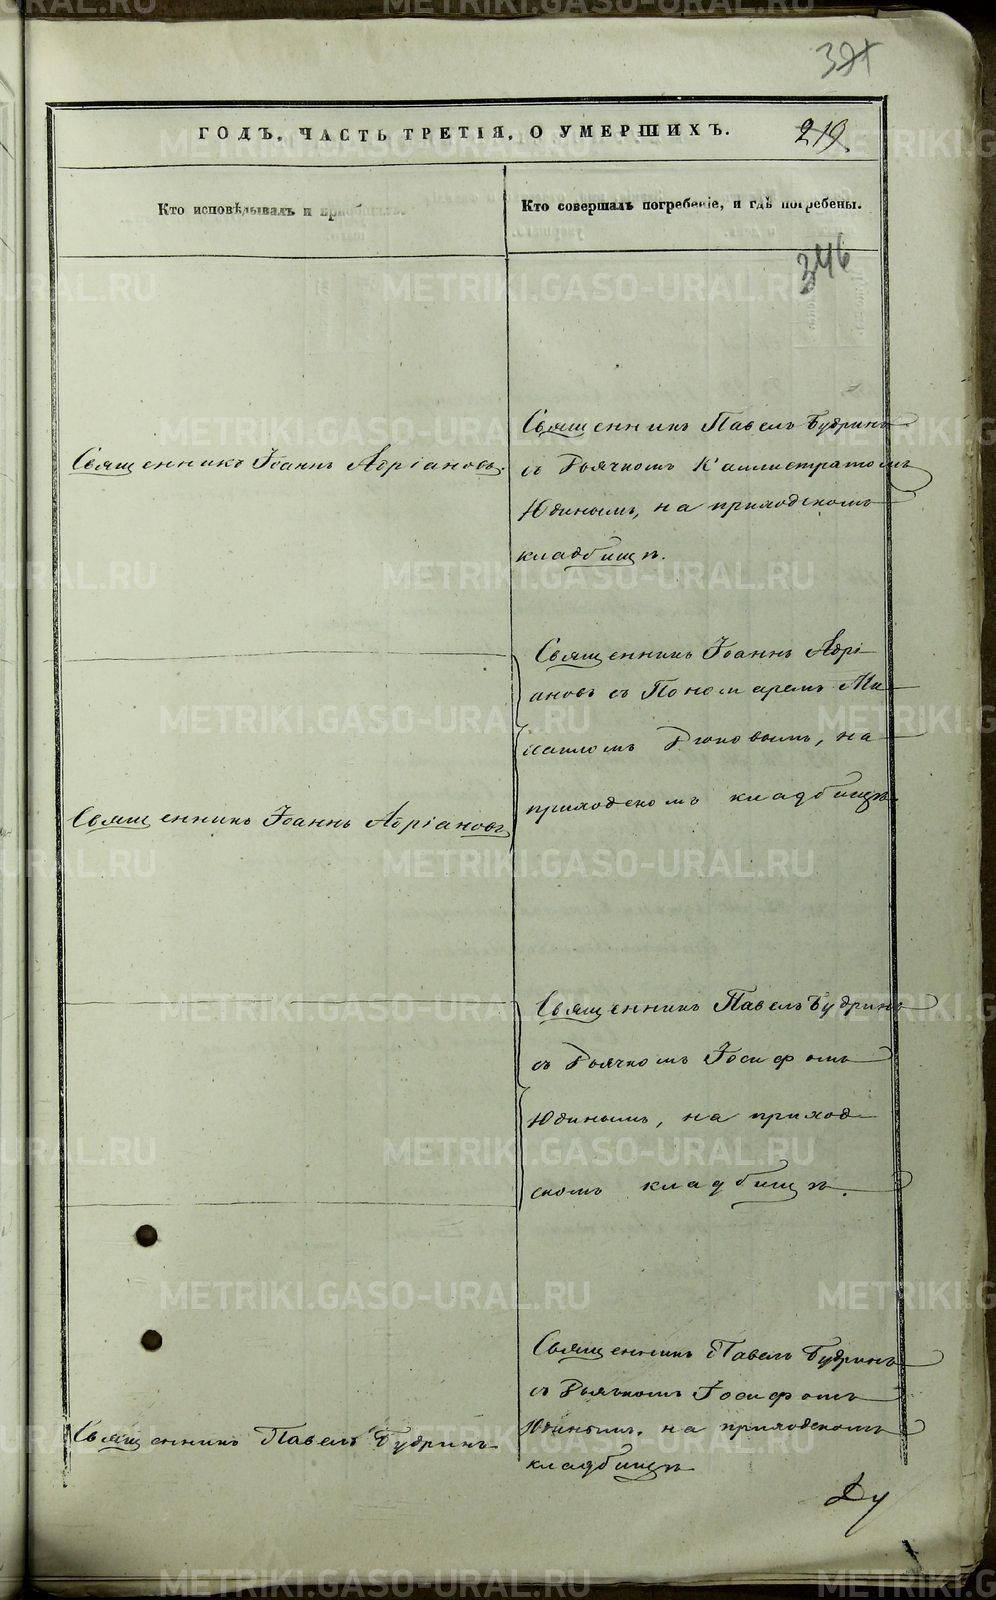 ГОДЪ, ЧАСТЬ ТРЕТІЯ, О УМЕРШИХЪ.
219.
Кто исповѣдывалъ и пріобщалъ.
Кто совершалъ погребеніе, и гдѣ погребены.
346
Священникъ Іоаннъ Адріановъ.
Священникъ Павелъ Будринъ
съ Дьячкомъ Каллистратомъ
Юдинымъ, на приходскомъ
кладбищѣ.
Священникъ Іоаннъ Адріановъ
Священникъ Іоаннъ Адрі
ановъ съ Пономаремъ Ми
хаиломъ, на
приходскомъ кладбищѣ.
Священникъ Павелъ Будринъ
съ Дьячкомъ Іосифомъ
Юдинымъ, на приход
скомъ кладбищѣ.
Священникъ Павелъ Будринъ
Священникъ Павелъ Будринъ
съ Дьячкомъ Іосифомъ
Юдинымъ, на приходскомъ
кладбищѣ
METRIKI.GASO-URAL.RU